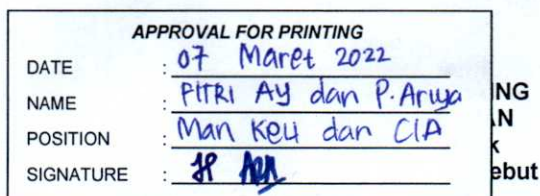 APPROVAL FOR PRINTING
DATE : 07 Maret 2022
NAME : FITRI AY dan P. Ariya
POSITION : Man Keu dan CIA
SIGNATURE :
NG
AN
k
ebut